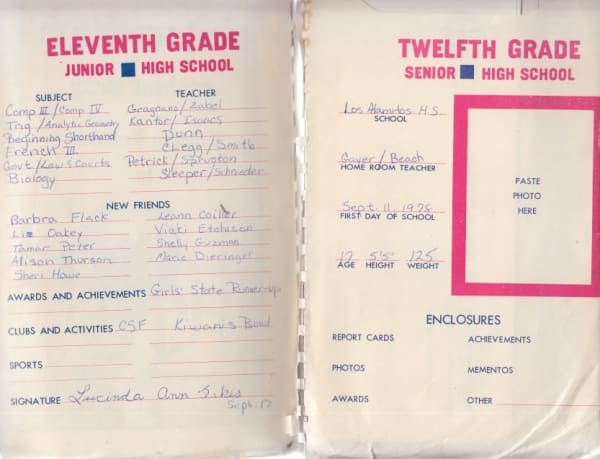 ELEVENTH GRADE
JUNIOR HIGH SCHOOL
SUBJECT TEACHER
Comp III / Comp IV Gragnano / Zabel
Trig / Analytic Geometry Kantor / Isaacs
Beginning Shorthand Dunn
French III Chegg / Smith
Govt / Law & Courts Petrick / Sprugton
Biology Sleeper / Schnieder
NEW FRIENDS
Barbra Flack Leann
Liz Oakey Vicki
Tamar Peter Shelly Guzman
Alison Thurson Marie Dieringer
Sheri Howe
AWARDS AND ACHIEVEMENTS Girls' State Runner-up
CLUBS AND ACTIVITIES CSF Kiwanis Bowl
SPORTS
SIGNATURE Lucinda Ann Sikes
Sept. 17
TWELFTH GRADE
SENIOR HIGH SCHOOL
Los Alamitos H.S.
SCHOOL
Gaver / Beach
HOME ROOM TEACHER
Sept. 11, 1978
FIRST DAY OF SCHOOL
17 5'5" 125
AGE HEIGHT WEIGHT
PASTE
PHOTO
HERE
ENCLOSURES
REPORT CARDS ACHIEVEMENTS
PHOTOS MEMENTOS
AWARDS OTHER